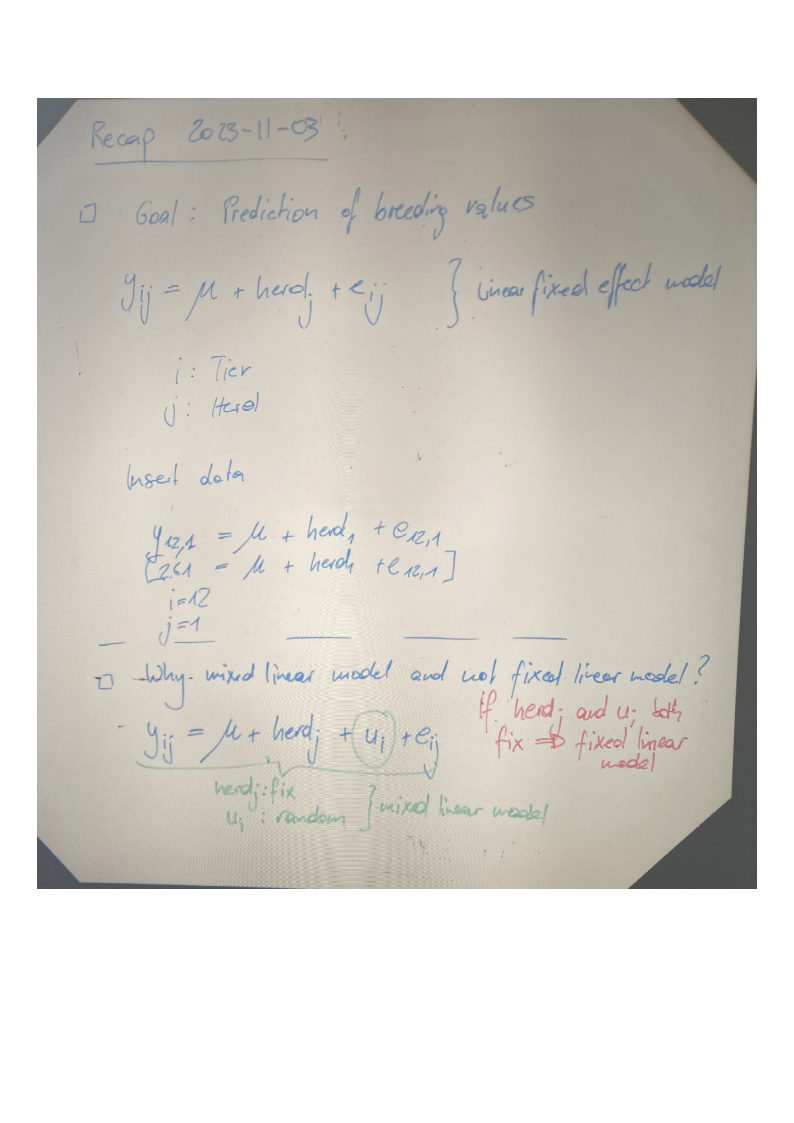 Recap 2023-11-03:
□ Goal: Prediction of breeding values
y_ij = μ + herd_j + e_ij } linear fixed effect model
i: Tier
j: Herd
Insert data
y_12,1 = μ + herd_1 + e_12,1
[2.61 = μ + herd_1 + e_12,1]
i=12
j=1
□ Why mixed linear model and not fixed linear model?
y_ij = μ + herd_j + u_i + e_ij
if herd_j and u_i both
fix ⇒ fixed linear
model
herd_j: fix
u_i: random } mixed linear model